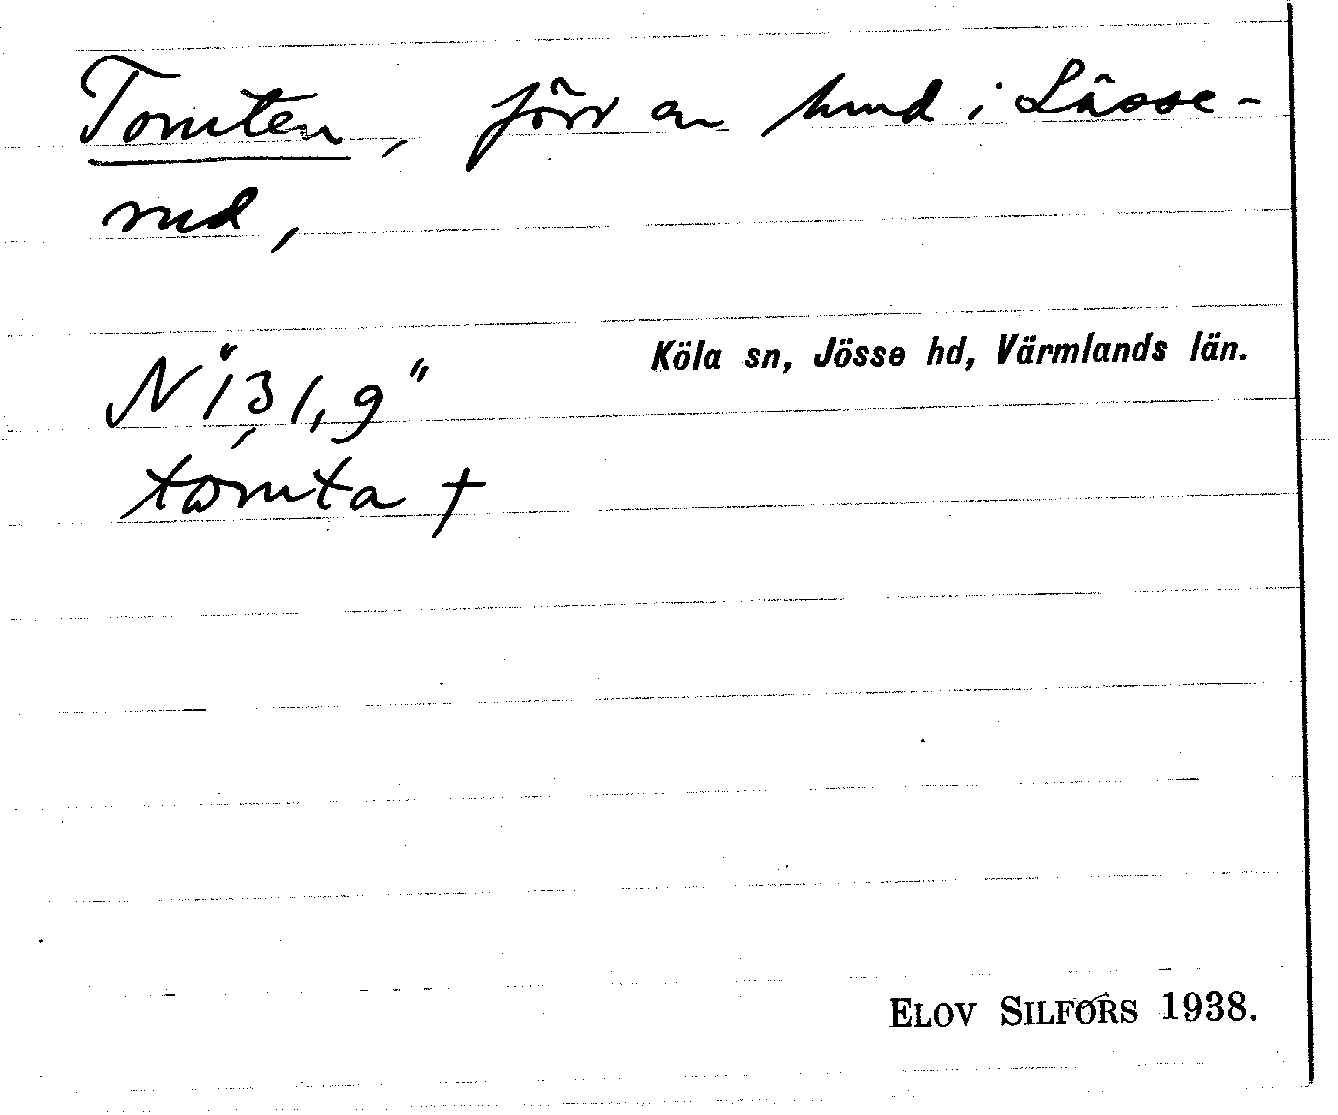 Tomten, förr en hund i Lässe-
rud,
Köla sn, Jösse hd, Värmlands län.
tomta †
ELOV SILFORS 1938.